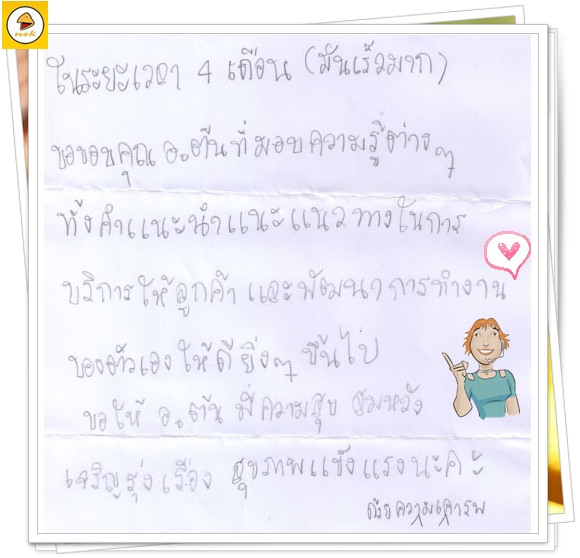 nok
ในระยะเวลา 4 เดือน (มันเร็วมาก)
ขอขอบคุณ อ.ต้นที่มอบความรู้ต่างๆ
ทั้งคำแนะนำแนะแนวทางในการ
บริการให้ลูกค้า และพัฒนาการทำงาน
ของตัวเองให้ดียิ่งๆ ขึ้นไป
ขอให้ อ.ต้น มีความสุข สมหวัง
เจริญรุ่งเรือง สุขภาพแข็งแรงนะคะ
ด้วยความเคารพ